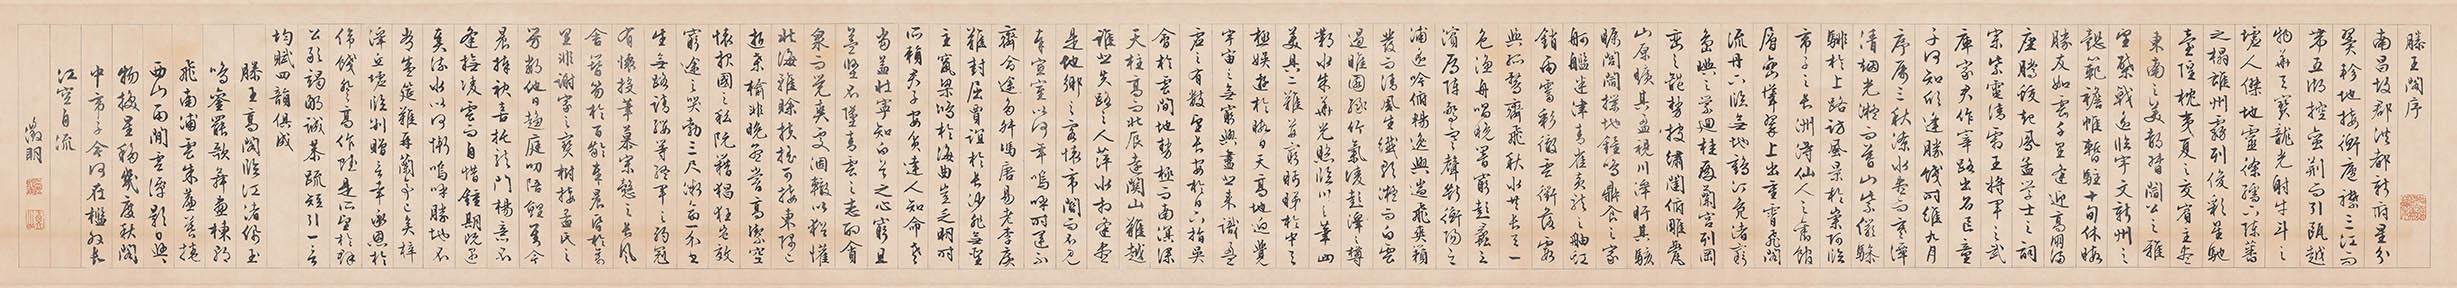 滕王閣序
南昌故郡洪都新府星分
翼軫地接衡廬襟三江而
帶五湖控蠻荊而引甌越
物華天寶龍光射牛斗之
墟人傑地靈徐孺下陳蕃
之榻雄州霧列俊彩星馳
臺隍枕夷夏之交賓主盡
東南之美都督閻公之雅
望棨戟遙臨宇文新州之
懿範襜帷暫駐十旬休暇
勝友如雲千里逢迎高朋滿
座騰蛟起鳳孟學士之詞
宗紫電清霜王將軍之武
庫家君作宰路出名區童
子何知躬逢勝餞時維九月
序屬三秋潦水盡而寒潭
清烟光凝而暮山紫儼驂
騑於上路訪風景於崇阿臨
帝子之長洲得仙人之舊館
層巒聳翠上出重霄飛閣
流丹下臨無地鶴汀鳧渚窮
島嶼之縈迴桂殿蘭宮列岡
巒之體勢披繡闥俯雕甍
山原曠其盈視川澤盱其駭
矚閭閻撲地鐘鳴鼎食之家
舸艦迷津青雀黃龍之舳虹
銷雨霽彩徹雲衢落霞
與孤鶩齊飛秋水共長天一
色漁舟唱晚響窮彭蠡之
濱雁陣驚寒聲斷衡陽之
浦遙吟俯暢逸興遄飛爽籟
發而清風生纖歌凝而白雲
遏睢園綠竹氣凌彭澤之樽
鄴水朱華光照臨川之筆四
美具二難并窮睇眄於中天
極娛遊於暇日天高地迥覺
宇宙之無窮興盡悲來識盈
虛之有數望長安於日下指吳
會於雲間地勢極而南溟深
天柱高而北辰遠關山難越
誰悲失路之人萍水相逢盡
是他鄉之客懷帝閽而不見
奉宣室以何年嗚呼時運不
齊命途多舛馮唐易老李廣
難封屈賈誼於長沙非無聖
主竄梁鴻於海曲豈乏明時
所賴君子安貧達人知命老
當益壯寧知白首之心窮且
益堅不墜青雲之志酌貪
泉而覺爽處涸轍以猶懽
北海雖賒扶搖可接東隅已
逝桑榆非晚孟嘗高潔空
懷報國之私阮籍猖狂豈效
窮途之哭勃三尺微命一介書
生無路請纓等終軍之弱冠
有懷投筆慕宗愨之長風
舍簪笏於百齡奉晨昏於萬
里非謝家之寶樹接孟氏之
芳鄰他日趨庭叨陪鯉對今
晨捧袂喜托龍門楊意不
逢撫凌雲而自惜鍾期既遇
奏流水以何慚嗚呼勝地不
常盛筵難再蘭亭已矣梓
澤丘墟臨別贈言幸承恩於
偉餞登高作賦是所望於群
公敢竭鄙誠恭疏短引一言
均賦四韻俱成
滕王高閣臨江渚佩玉
鳴鑾罷歌舞畫棟朝
飛南浦雲朱簾暮捲
西山雨閒雲潭影日悠悠
物換星移幾度秋閣
中帝子今何在檻外長
江空自流
徵明